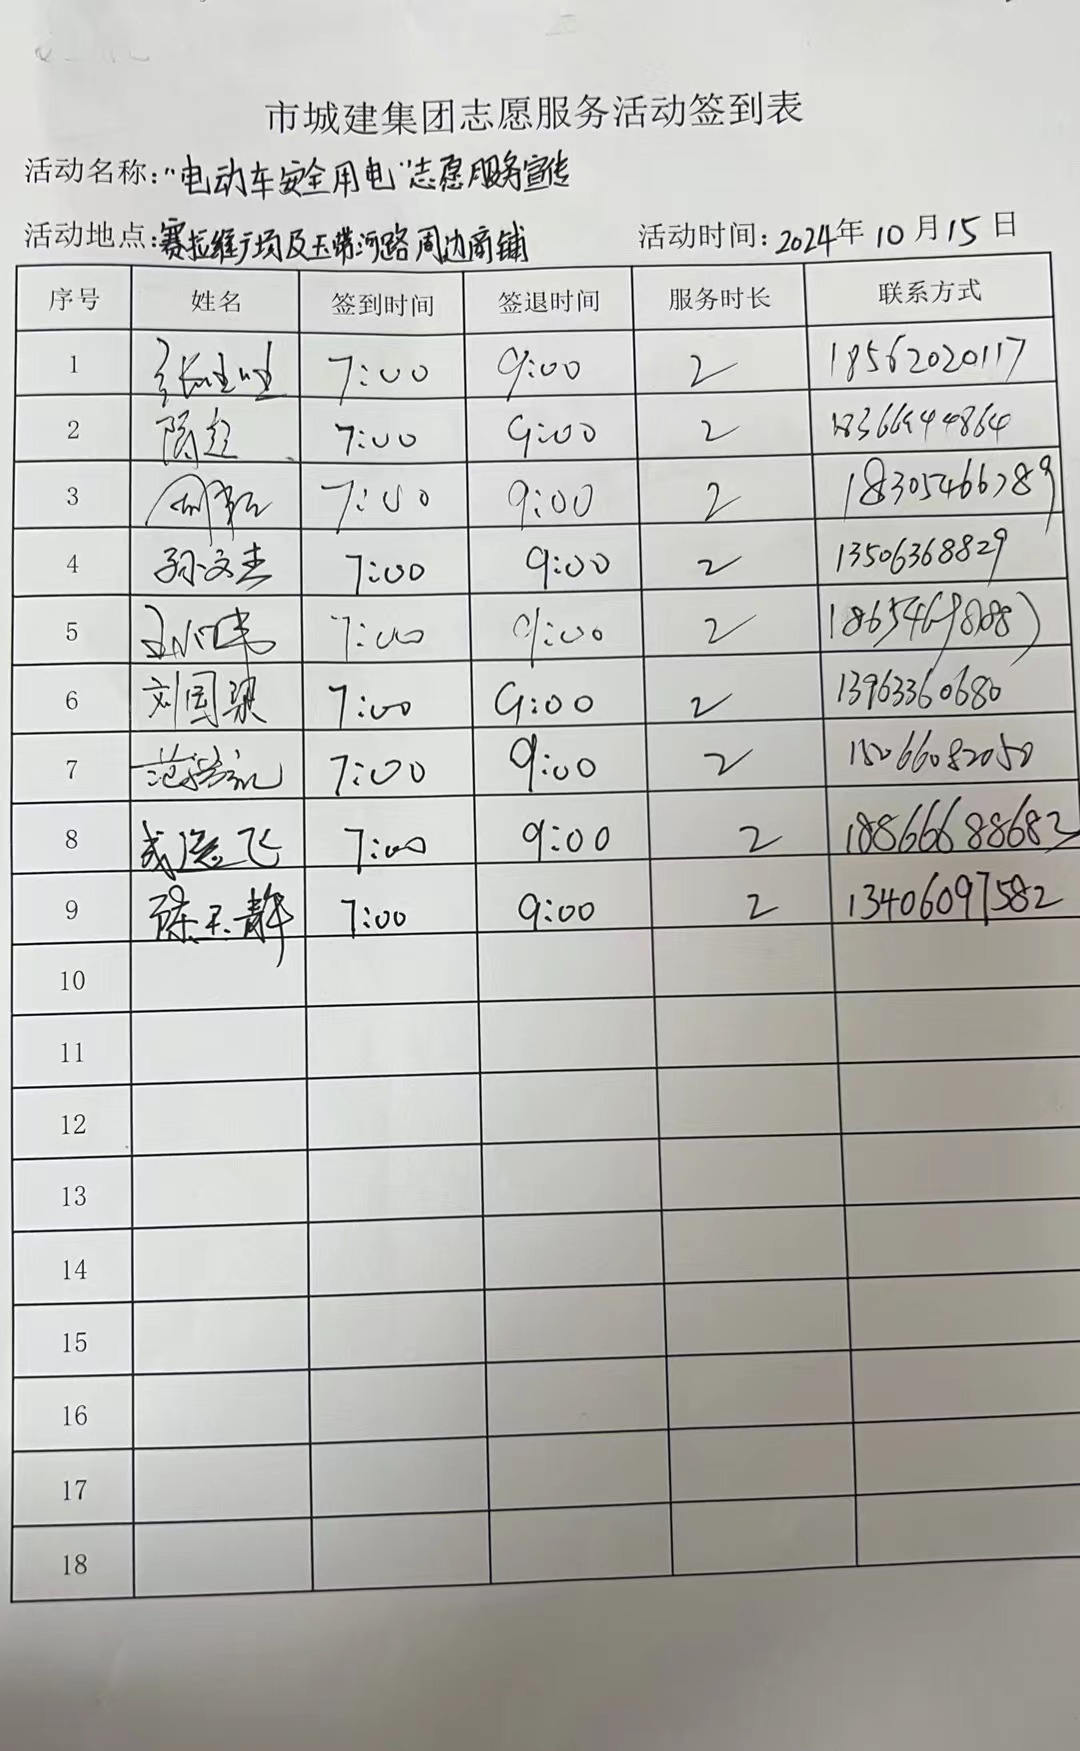 市城建集团志愿服务活动签到表
活动名称:"电动车安全用电"志愿服务宣传
活动地点:赛拉维广场及玉带河路周边商铺 活动时间:2024年10月15日
序号 姓名 签到时间 签退时间 服务时长 联系方式
1 7:00 9:00 2 18562020117
2 7:00 9:00 2
3 7:00 9:00 2 18305466789
4 孙文杰 7:00 9:00 2 13506368829
5 7:00 9:00 2
6 刘国梁 7:00 9:00 2 13963360680
7 7:00 9:00 2 15066082050
8 7:00 9:00 2 18866688683
9 陈玉静 7:00 9:00 2 13406097582
10
11
12
13
14
15
16
17
18